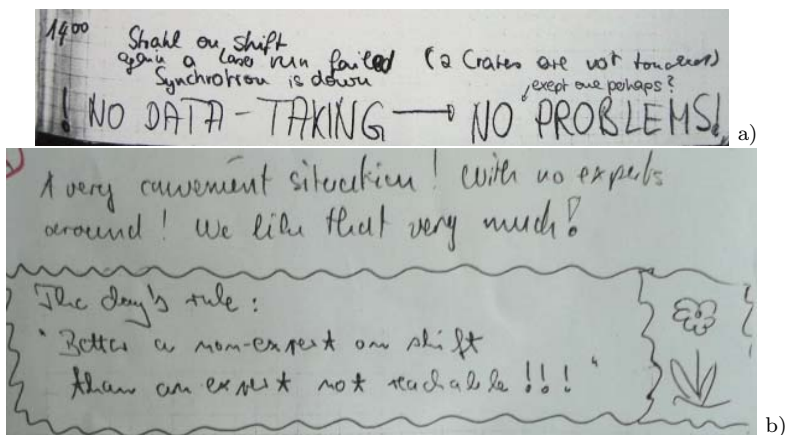 1400
Strahl on shift
again a Laser run failed (2 Crates are not
Synchrotron is down
, exept one perhaps?
! NO DATA - TAKING → NO PROBLEMS!
a)
A very convenient situation! With no experts
around! We like that very much!
The day's rule:
"Better a non-expert on shift
than an expert not reachable!!!"
b)